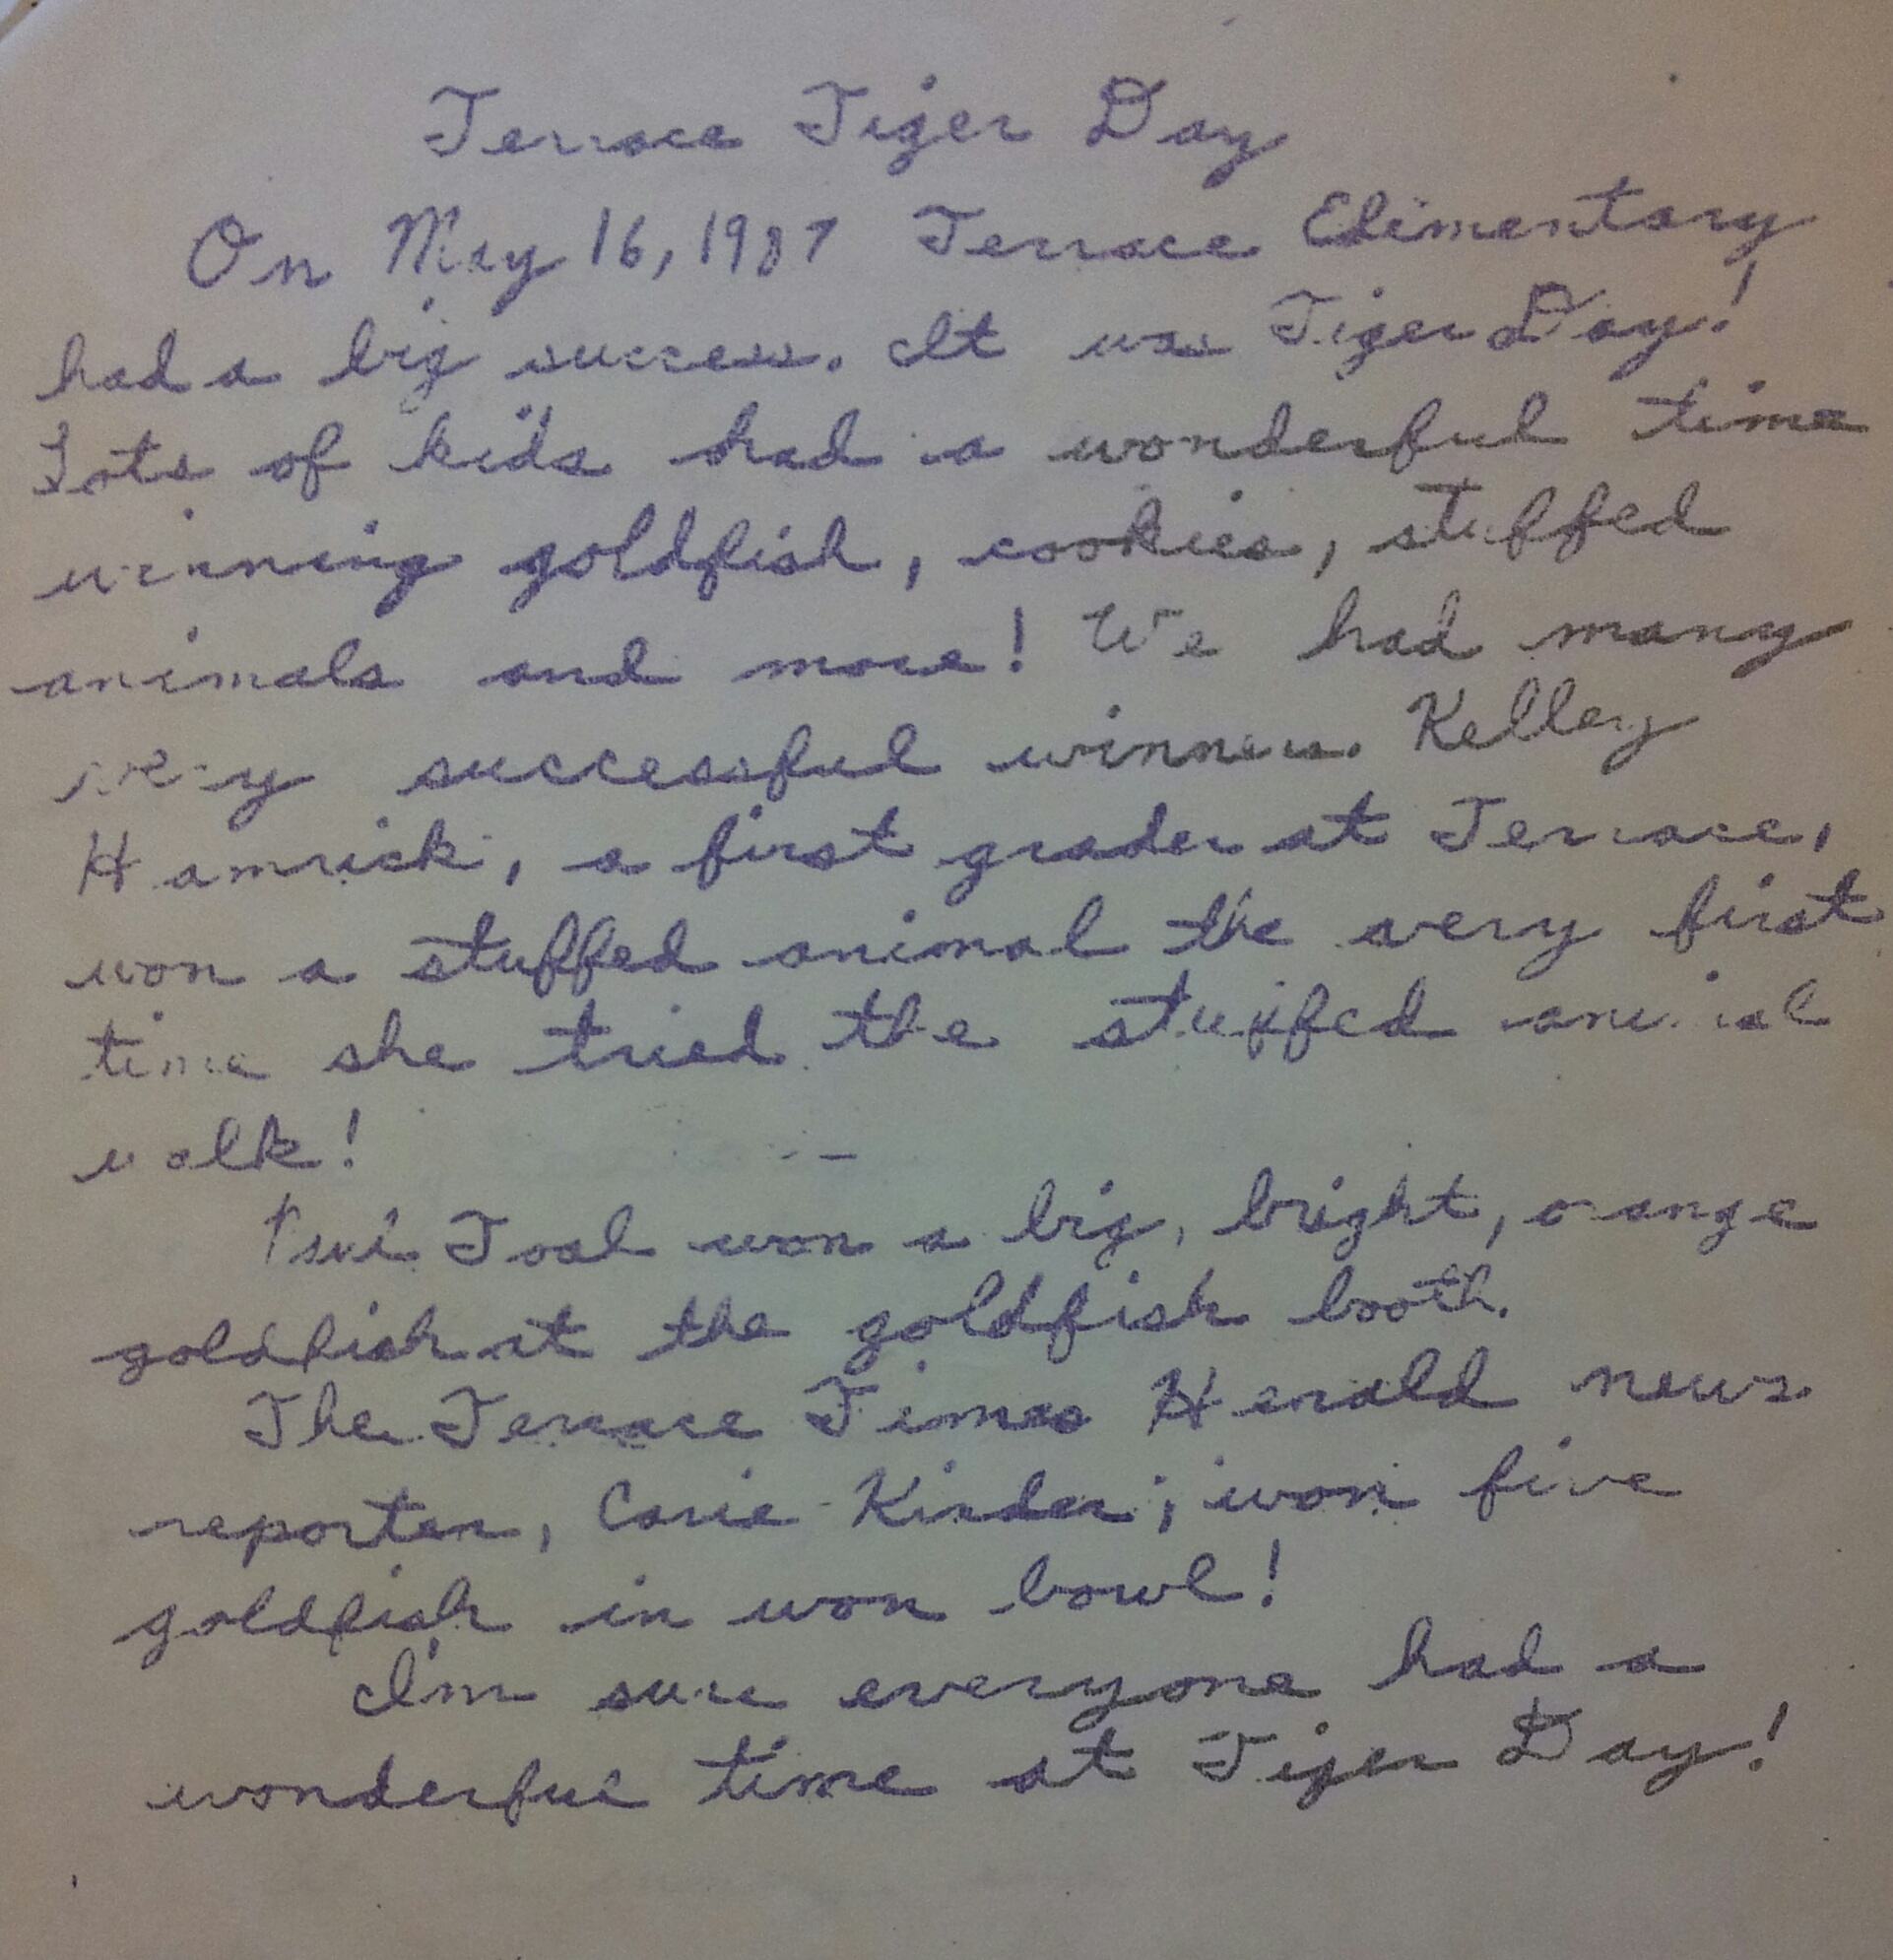 Terrace Tiger Day
On May 16, 1987 Terrace Elimentary
had a big success. It was Tiger Day!
Lots of kids had a wonderful time
winning goldfish, cookies, stuffed
animals and more! We had many
very successful winners. Kelley
Hamrick, a first grader at Terrace,
won a stuffed animal the very first
time she tried the stuffed animal
walk!
Toal won a big, bright, orange
goldfish at the goldfish booth.
The Terrace Times Herald news
reporter, Carie Kinder, won five
goldfish in won bowl!
I'm sure everyone had a
wonderful time at Tiger Day!